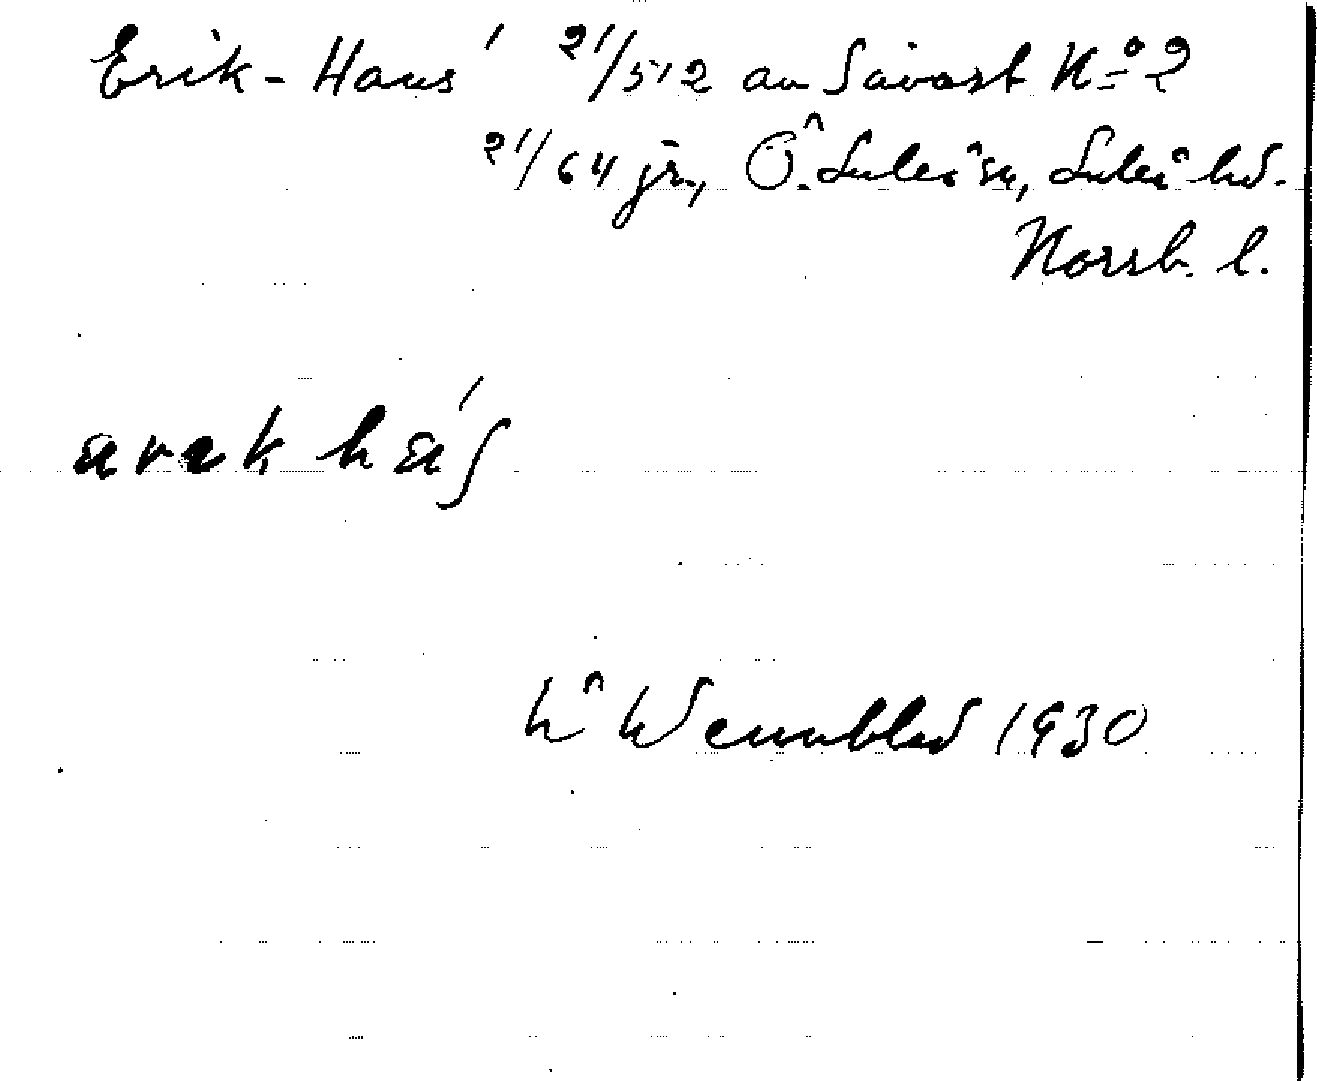 Erik-Hans' 21/512 av Sävast No 2
21/64 jr., Ö. Luleå sn, Luleå hd.
Norrb. l.
Hj Wennblad 1930